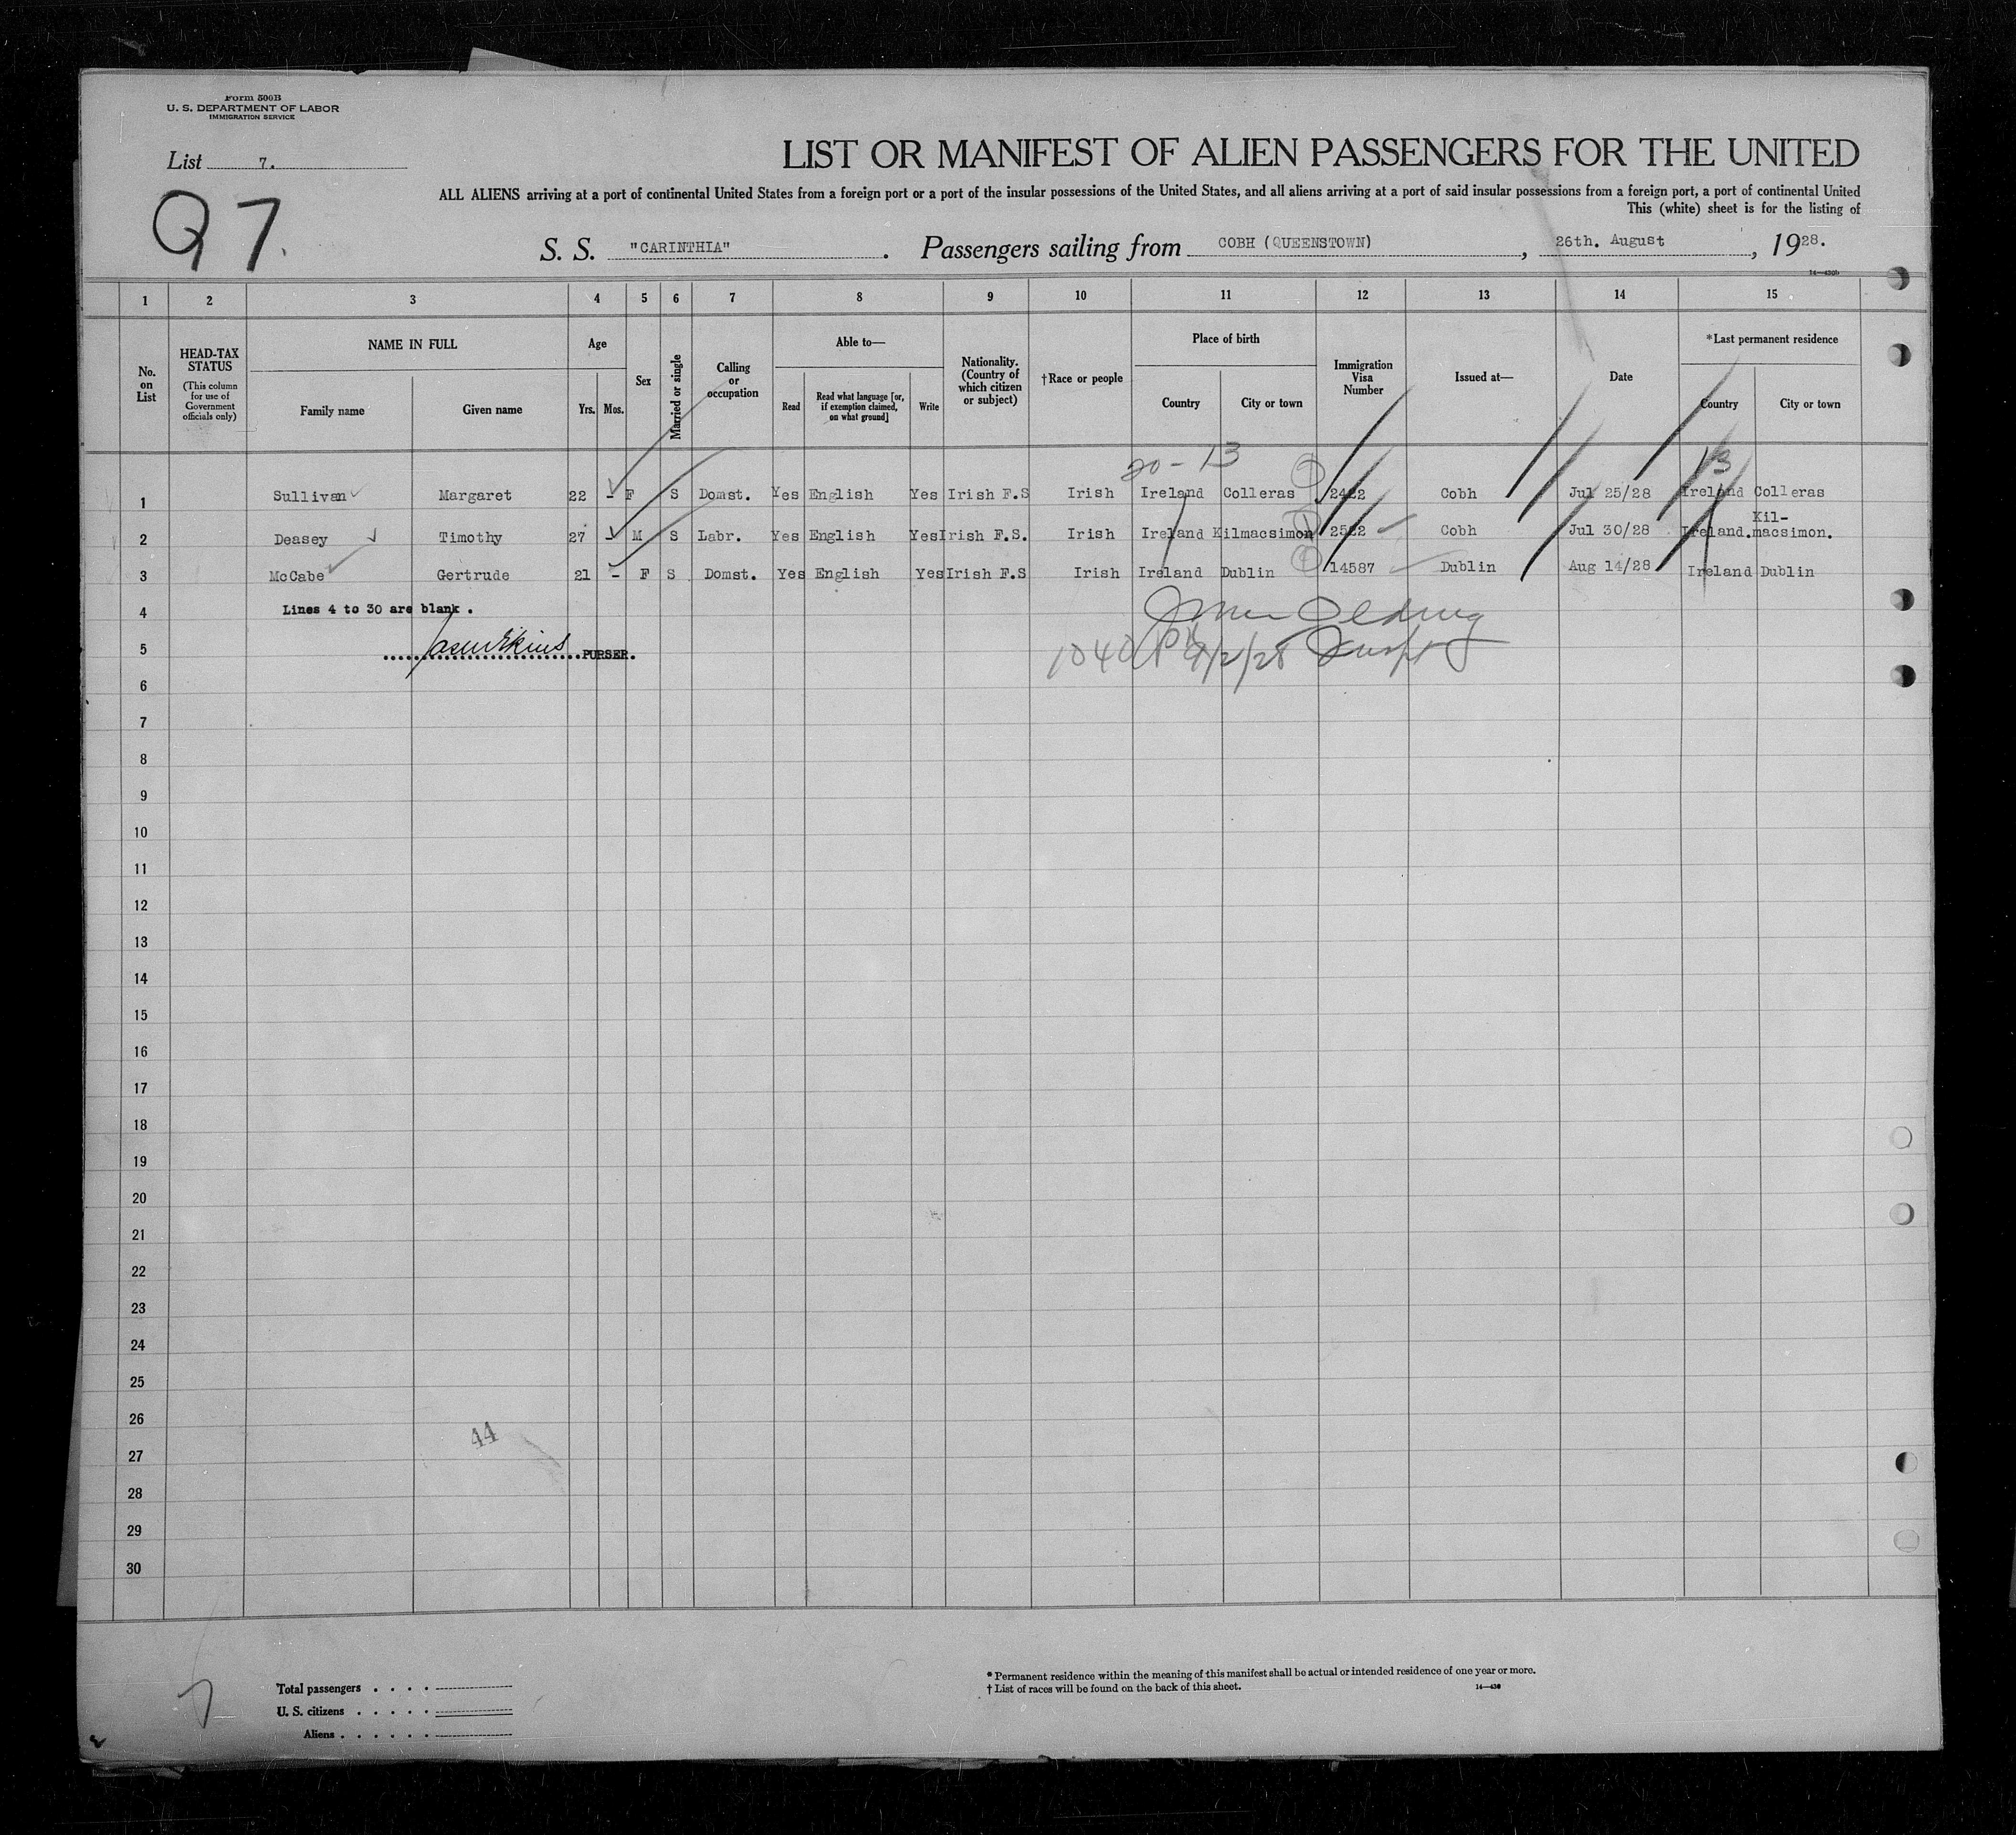 Form 500B
U. S. DEPARTMENT OF LABOR
IMMIGRATION SERVICE
List 7.
Q 7.
LIST OR MANIFEST OF ALIEN PASSENGERS FOR THE UNITED
ALL ALIENS arriving at a port of continental United States from a foreign port or a port of the insular possessions of the United States, and all aliens arriving at a port of said insular possessions from a foreign port, a port of continental United
This (white) sheet is for the listing of
S. S. "CARINTHIA" . Passengers sailing from COBH (QUEENSTOWN) , 26th. August , 1928.
14—430b
1 2 3 4 5 6 7 8 9 10 11 12 13 14 15
No. on List
HEAD-TAX STATUS
(This column for use of Government officials only)
NAME IN FULL
Family name Given name
Age
Yrs. Mos.
Sex
Married or single
Calling or occupation
Able to—
Read
Read what language [or, if exemption claimed, on what ground]
Write
Nationality. (Country of which citizen or subject)
†Race or people
Place of birth
Country City or town
Immigration Visa Number
Issued at—
Date
*Last permanent residence
Country City or town
20 - 13
13
1 Sullivan Margaret 22 - F S Domst. Yes English Yes Irish F.S Irish Ireland Colleras 2422 Cobh Jul 25/28 Ireland Colleras
2 Deasey Timothy 27 - M S Labr. Yes English Yes Irish F.S. Irish Ireland Kilmacsimon 2522 Cobh Jul 30/28 Ireland. Kil-
macsimon.
3 McCabe Gertrude 21 - F S Domst. Yes English Yes Irish F.S Irish Ireland Dublin 14587 Dublin Aug 14/28 Ireland Dublin
4 Lines 4 to 30 are blank .
5 PURSER.
1040 9/2/28 Inspt
6
7
8
9
10
11
12
13
14
15
16
17
18
19
20
21
22
23
24
25
26
44
27
28
29
30
7
Total passengers . . . .
U. S. citizens . . . . .
Aliens . . . . . .
* Permanent residence within the meaning of this manifest shall be actual or intended residence of one year or more.
† List of races will be found on the back of this sheet.
14—430